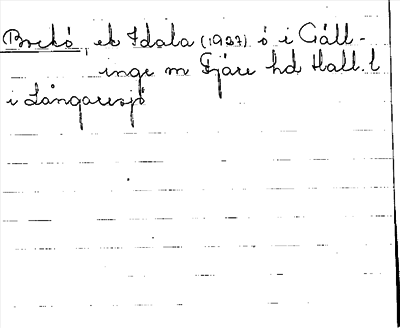 Brckö, ek Idala (1937) ö i Gäll-
inge sn Fjäre hd Hall. l
i Långaresjö